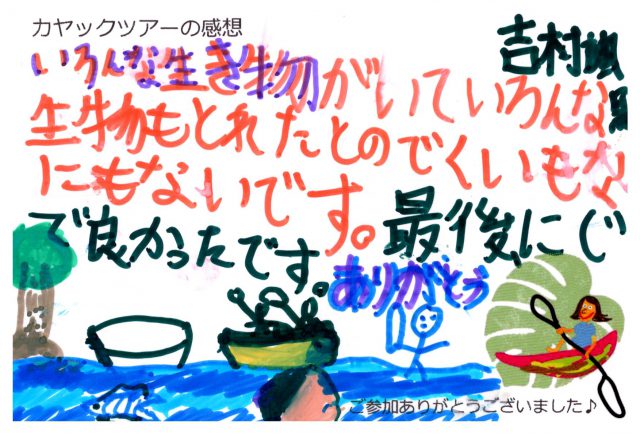 カヤックツアーの感想
吉村颯
いろんな生き物がいていろんな
生物もとれたとのでくいもな
にもないです。最後に(
で良かったです。
ありがとう
ご参加ありがとうございました♪